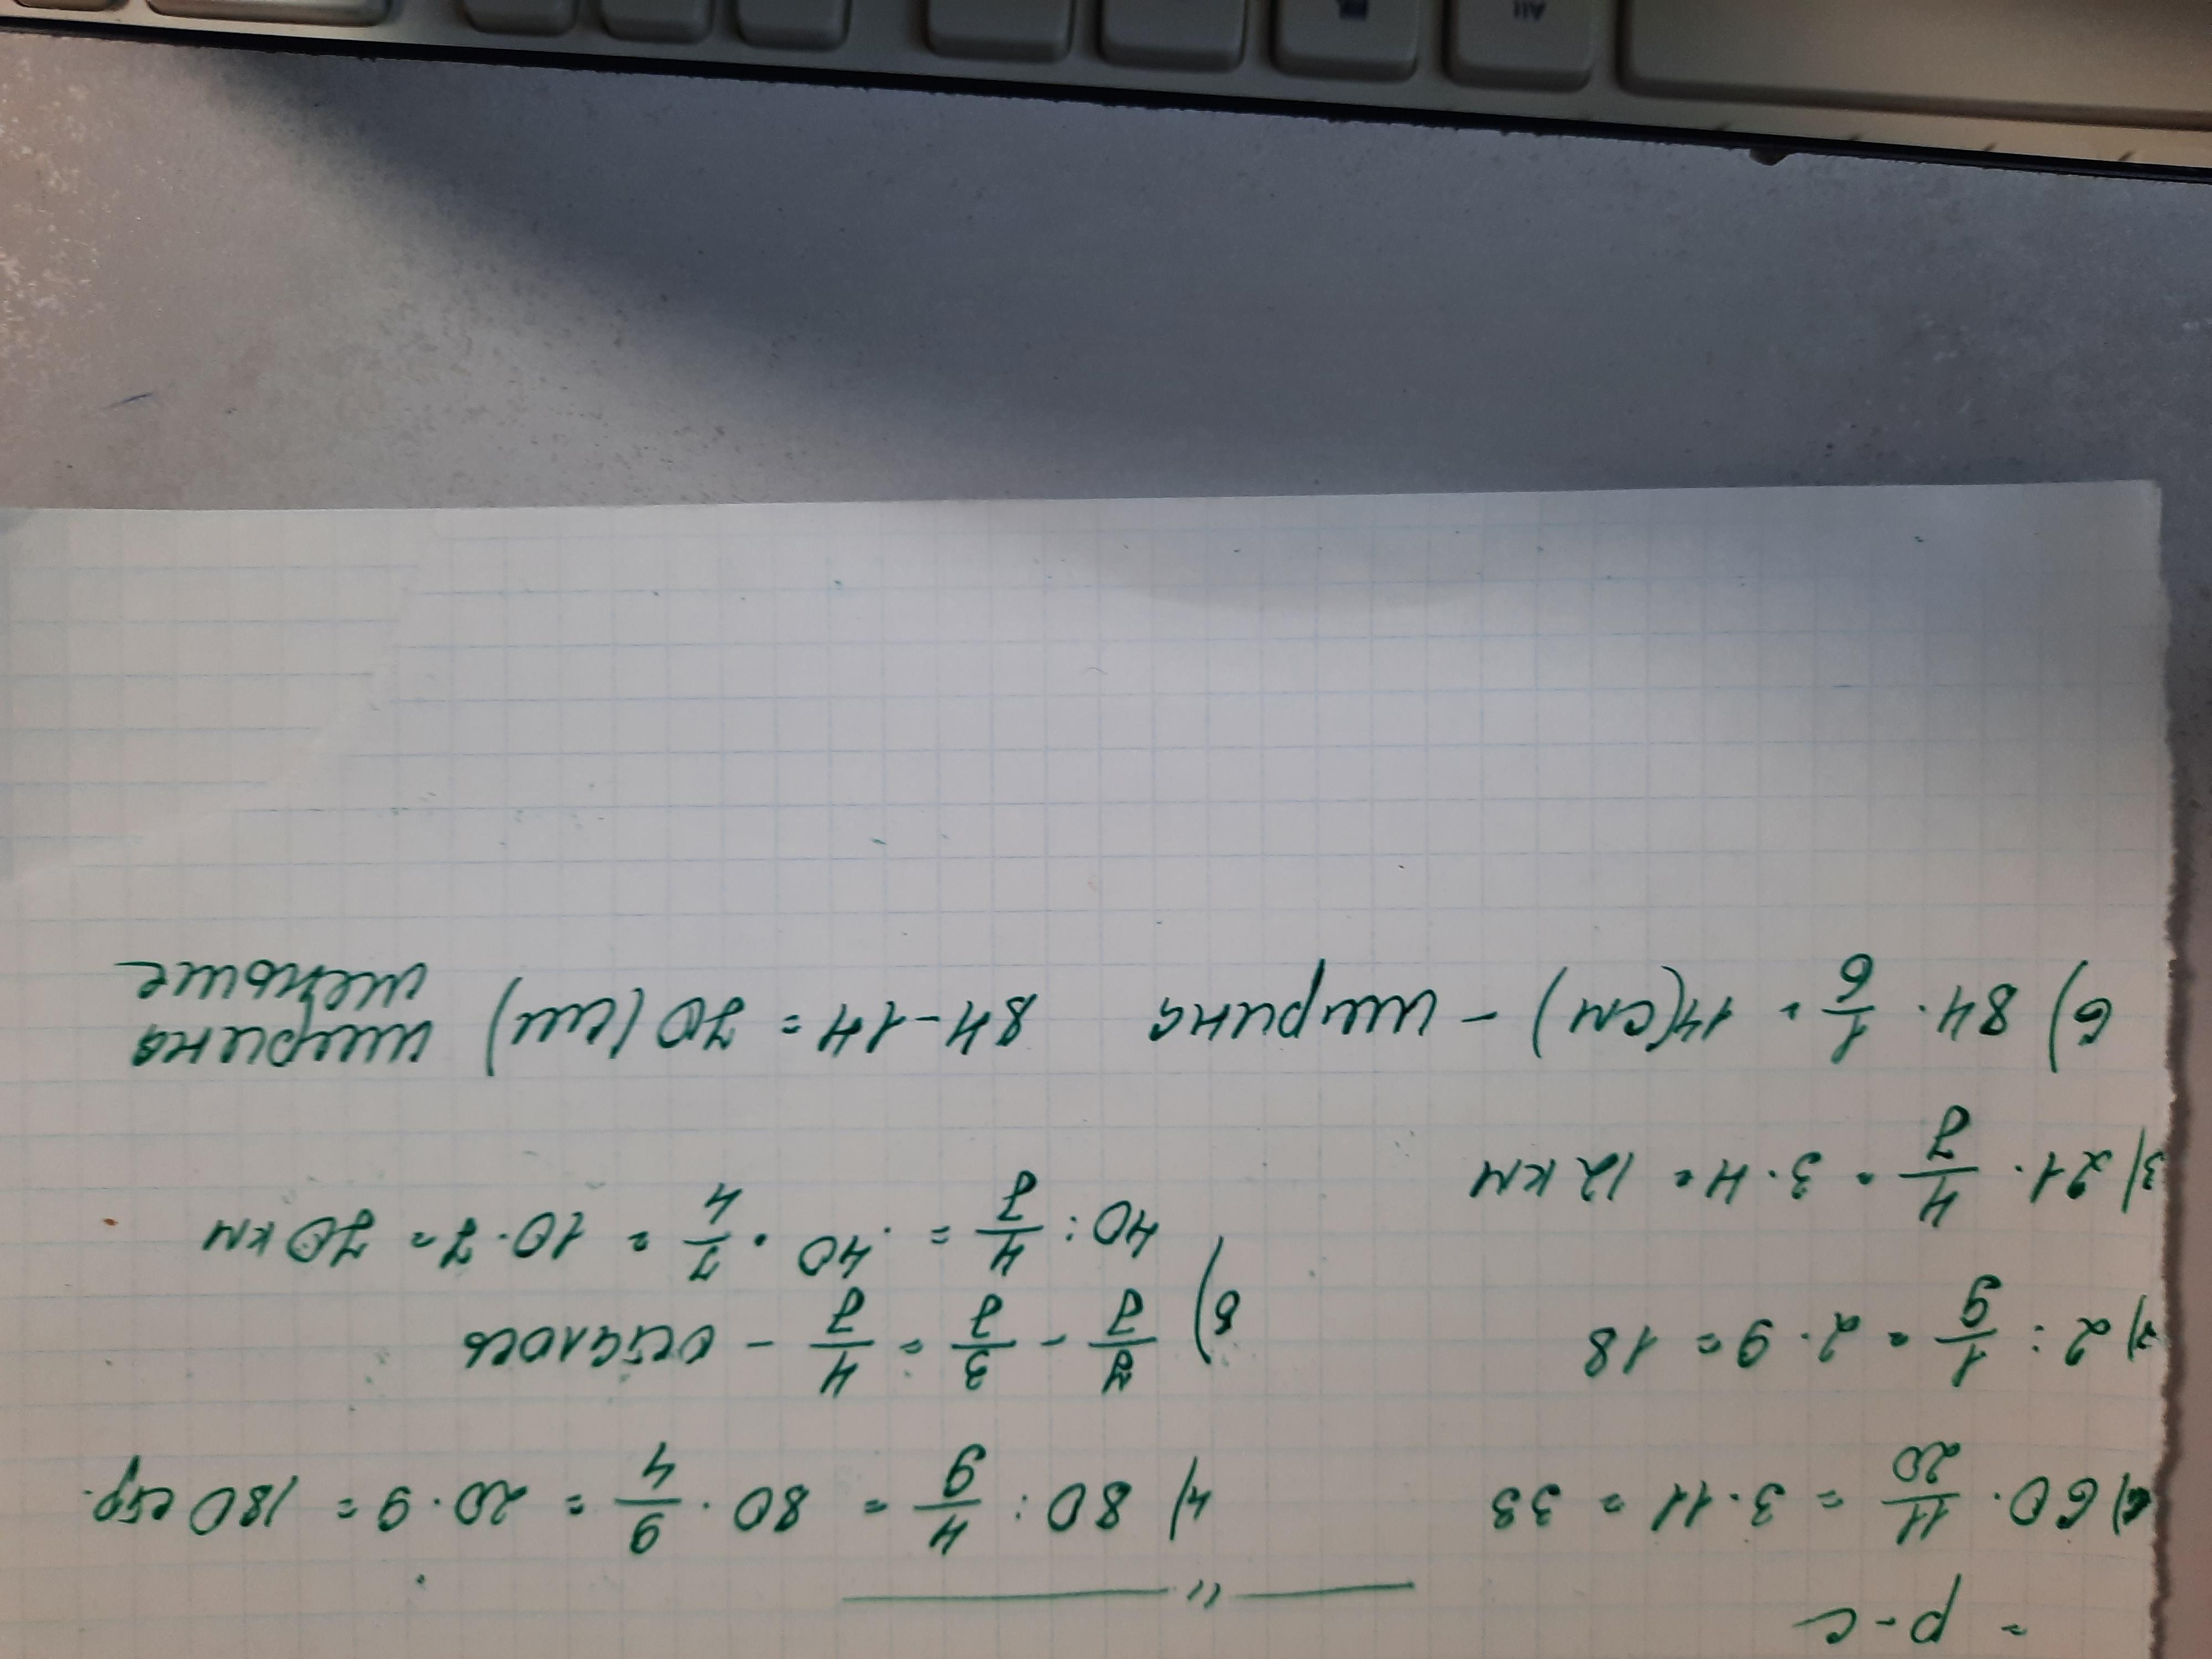 = p - c
— " —
1) 60 · 11/20 = 3 · 11 = 33
4) 80 : 4/9 = 80 · 9/4 = 20 · 9 = 180 стр.
2) 2 : 1/9 = 2 · 9 = 18
5) 7/7 - 3/7 = 4/7 - осталось
40 : 4/7 = 40 · 7/4 = 10 · 7 = 70 км
3) 21 · 4/7 = 3 · 4 = 12 км
6) 84 · 1/6 = 14 (см) - ширина 84 - 14 = 70 (см) ширина
меньше